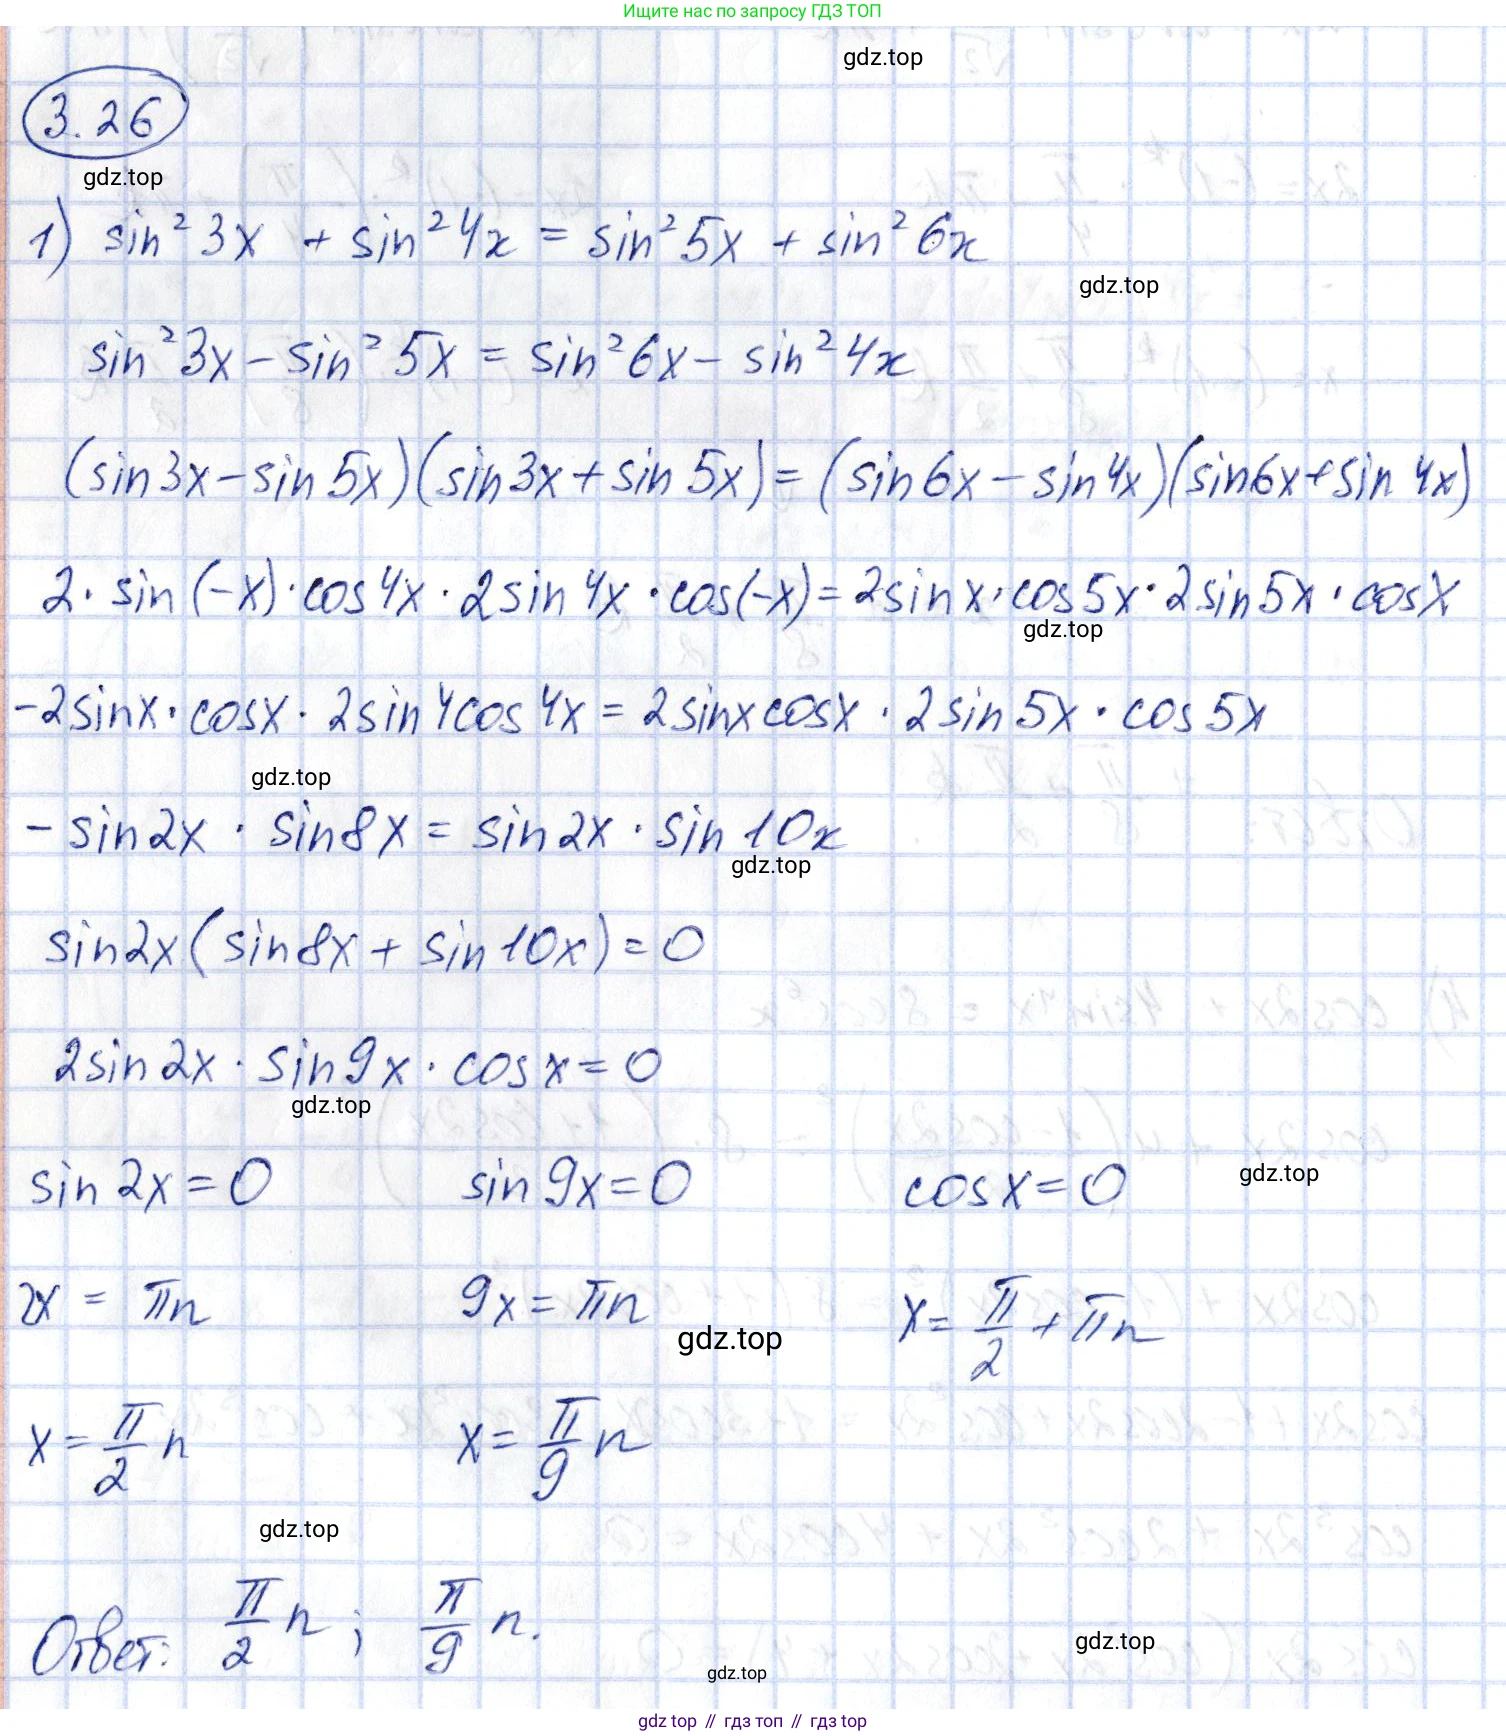 Ищите нас по запросу ГДЗ ТОП
gdz.top
3.26
gdz.top
1) sin²3x + sin²4x = sin²5x + sin²6x
gdz.top
sin²3x - sin²5x = sin²6x - sin²4x
(sin3x - sin5x)(sin3x + sin5x) = (sin6x - sin4x)(sin6x + sin4x)
2·sin(-x)·cos4x·2sin4x·cos(-x) = 2sinx·cos5x·2sin5x·cosx
gdz.top
-2sinx·cosx·2sin4cos4x = 2sinxcosx·2sin5x·cos5x
gdz.top
-sin2x·sin8x = sin2x·sin10x
gdz.top
sin2x(sin8x + sin10x) = 0
2sin2x·sin9x·cosx = 0
gdz.top
sin2x = 0 sin9x = 0 cosx = 0
gdz.top
2x = πn 9x = πn x = π/2 + πn
gdz.top
x = π/2 n x = π/9 n
gdz.top
Ответ: π/2 n; π/9 n.
gdz.top
gdz.top
gdz.top // гдз топ // гдз.top